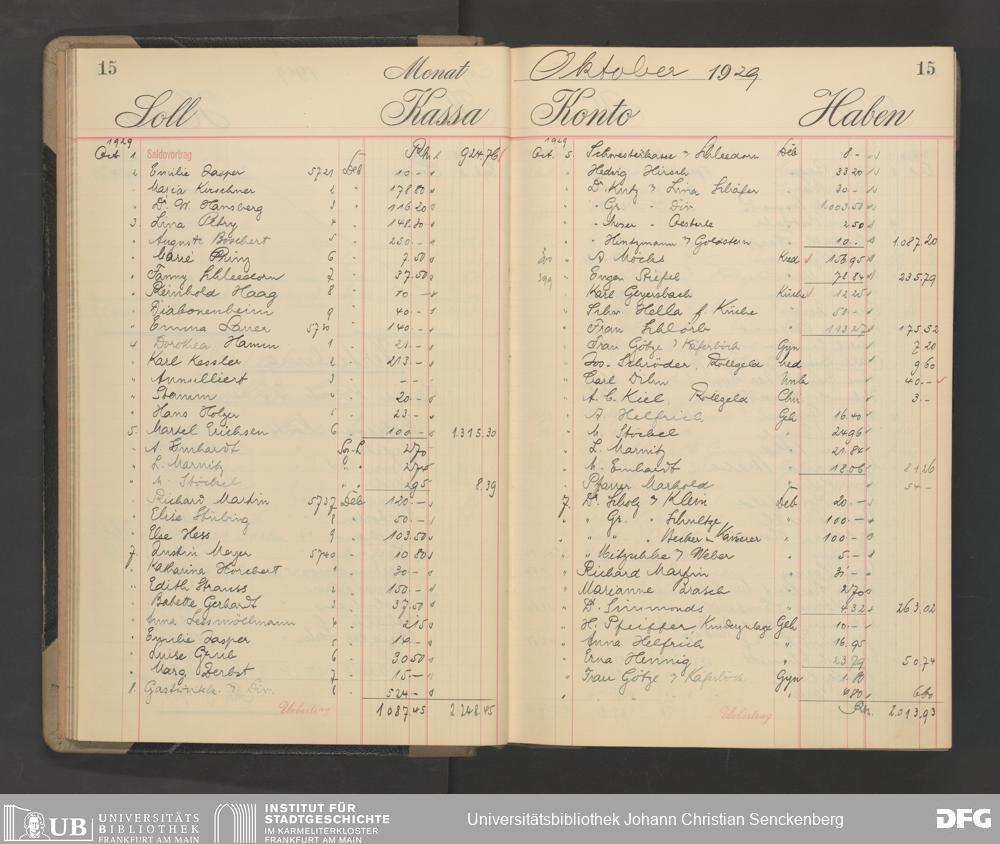 15 Monat
Soll Kassa
1929
Oct. 1 Saldovortrag Rm. 924,76
2 Emilie Jasper 5721 Deb 10.-
Maria Kirschner 2 178.80
Dr. W. Hansberg 3 116.20
3 Lina Petry 4 148.30
Auguste Boschert 5 230.-
Marie Prinz 6 7.50
Fanny Schleedorn 7 37.50
Reinhold Haag 8 10.-
Diakonenheim 9 40.-
Emma Lauer 5730 140.-
4 Dorothea Hamm 1 21.-
Karl Kessler 2 213.-
Annulliert 3 - - -
Stamm 4 20.-
Hans Holzer 5 23.-
5. Martel Erichsen 6 100.- 1.315.30
A. Emhardt 2.70
L. Marnitz 2.74
M. Stöckel 2.95 8.39
Richard Martin 5737 Deb 120.-
Elise Stübing 8 50.-
Else Hess 9 103.50
7 Justin Meyer 5740 10 80
Katharina Horchert 1 30.-
Edith Strauss 2 150.-
Babette Gerhardt 3 37.50
Anna 4 2150
Emilie Jasper 5 19.-
Luise Grub 6 30.50
Marg. Herbst 7 15.-
8. Div. 8 524.-
Uebertrag 1 087 45 2.248.45
Oktober 1929 15
Konto Haben
1929
Oct. 5. Schwesterkasse Schleedorn Deb 8.-
Hedwig Hirsch 33 20
D. Kutz Lina Schäfer 30.-
Gr. Div. 1.003.50
Moser - Oesterle 2 50
Hintzmann Goldstern 10.- 1.087.20
A. Möchs Kred 156.95
399 Eugen Stiefel 78.84 235.79
Karl Geyersbach Küche 12 25
Schw. Hella f. Küche 50.-
Frau Schlörb 113.27 175.52
Frau Götze Käferböck Gyn 7 20
Jos. Schröder, Rollgeld Med 9 60
Carl Dehn 40.-
A. C. Kiel, Rollgeld Chir 3.-
A. Helfrich Geh 16.40
M. Stöckel 24.96
L. Marnitz 21.84
A. Emhardt 18.06 81 26
Pfarrer Marhold 54.-
7. Dr. Scholz Klein Deb 20.-
Gr. Schultze 100.-
Becker Kämerer 100.-
Mitzschke Weber 5.-
Richard Martin
Marianne Brasch 2.70
D. Simmonds 4.32 263.02
H. Pfeiffer, Kinderzulage Geh 10.-
Anna Helfrich 16.95
Erna Hennig 23.79 50.74
Frau Götze Käferböck Gyn
6.80
Uebertrag Rm. 2.013,93
UB UNIVERSITÄTS
BIBLIOTHEK
FRANKFURT AM MAIN
INSTITUT FÜR
STADTGESCHICHTE
IM KARMELITERKLOSTER
FRANKFURT AM MAIN
Universitätsbibliothek Johann Christian Senckenberg
DFG